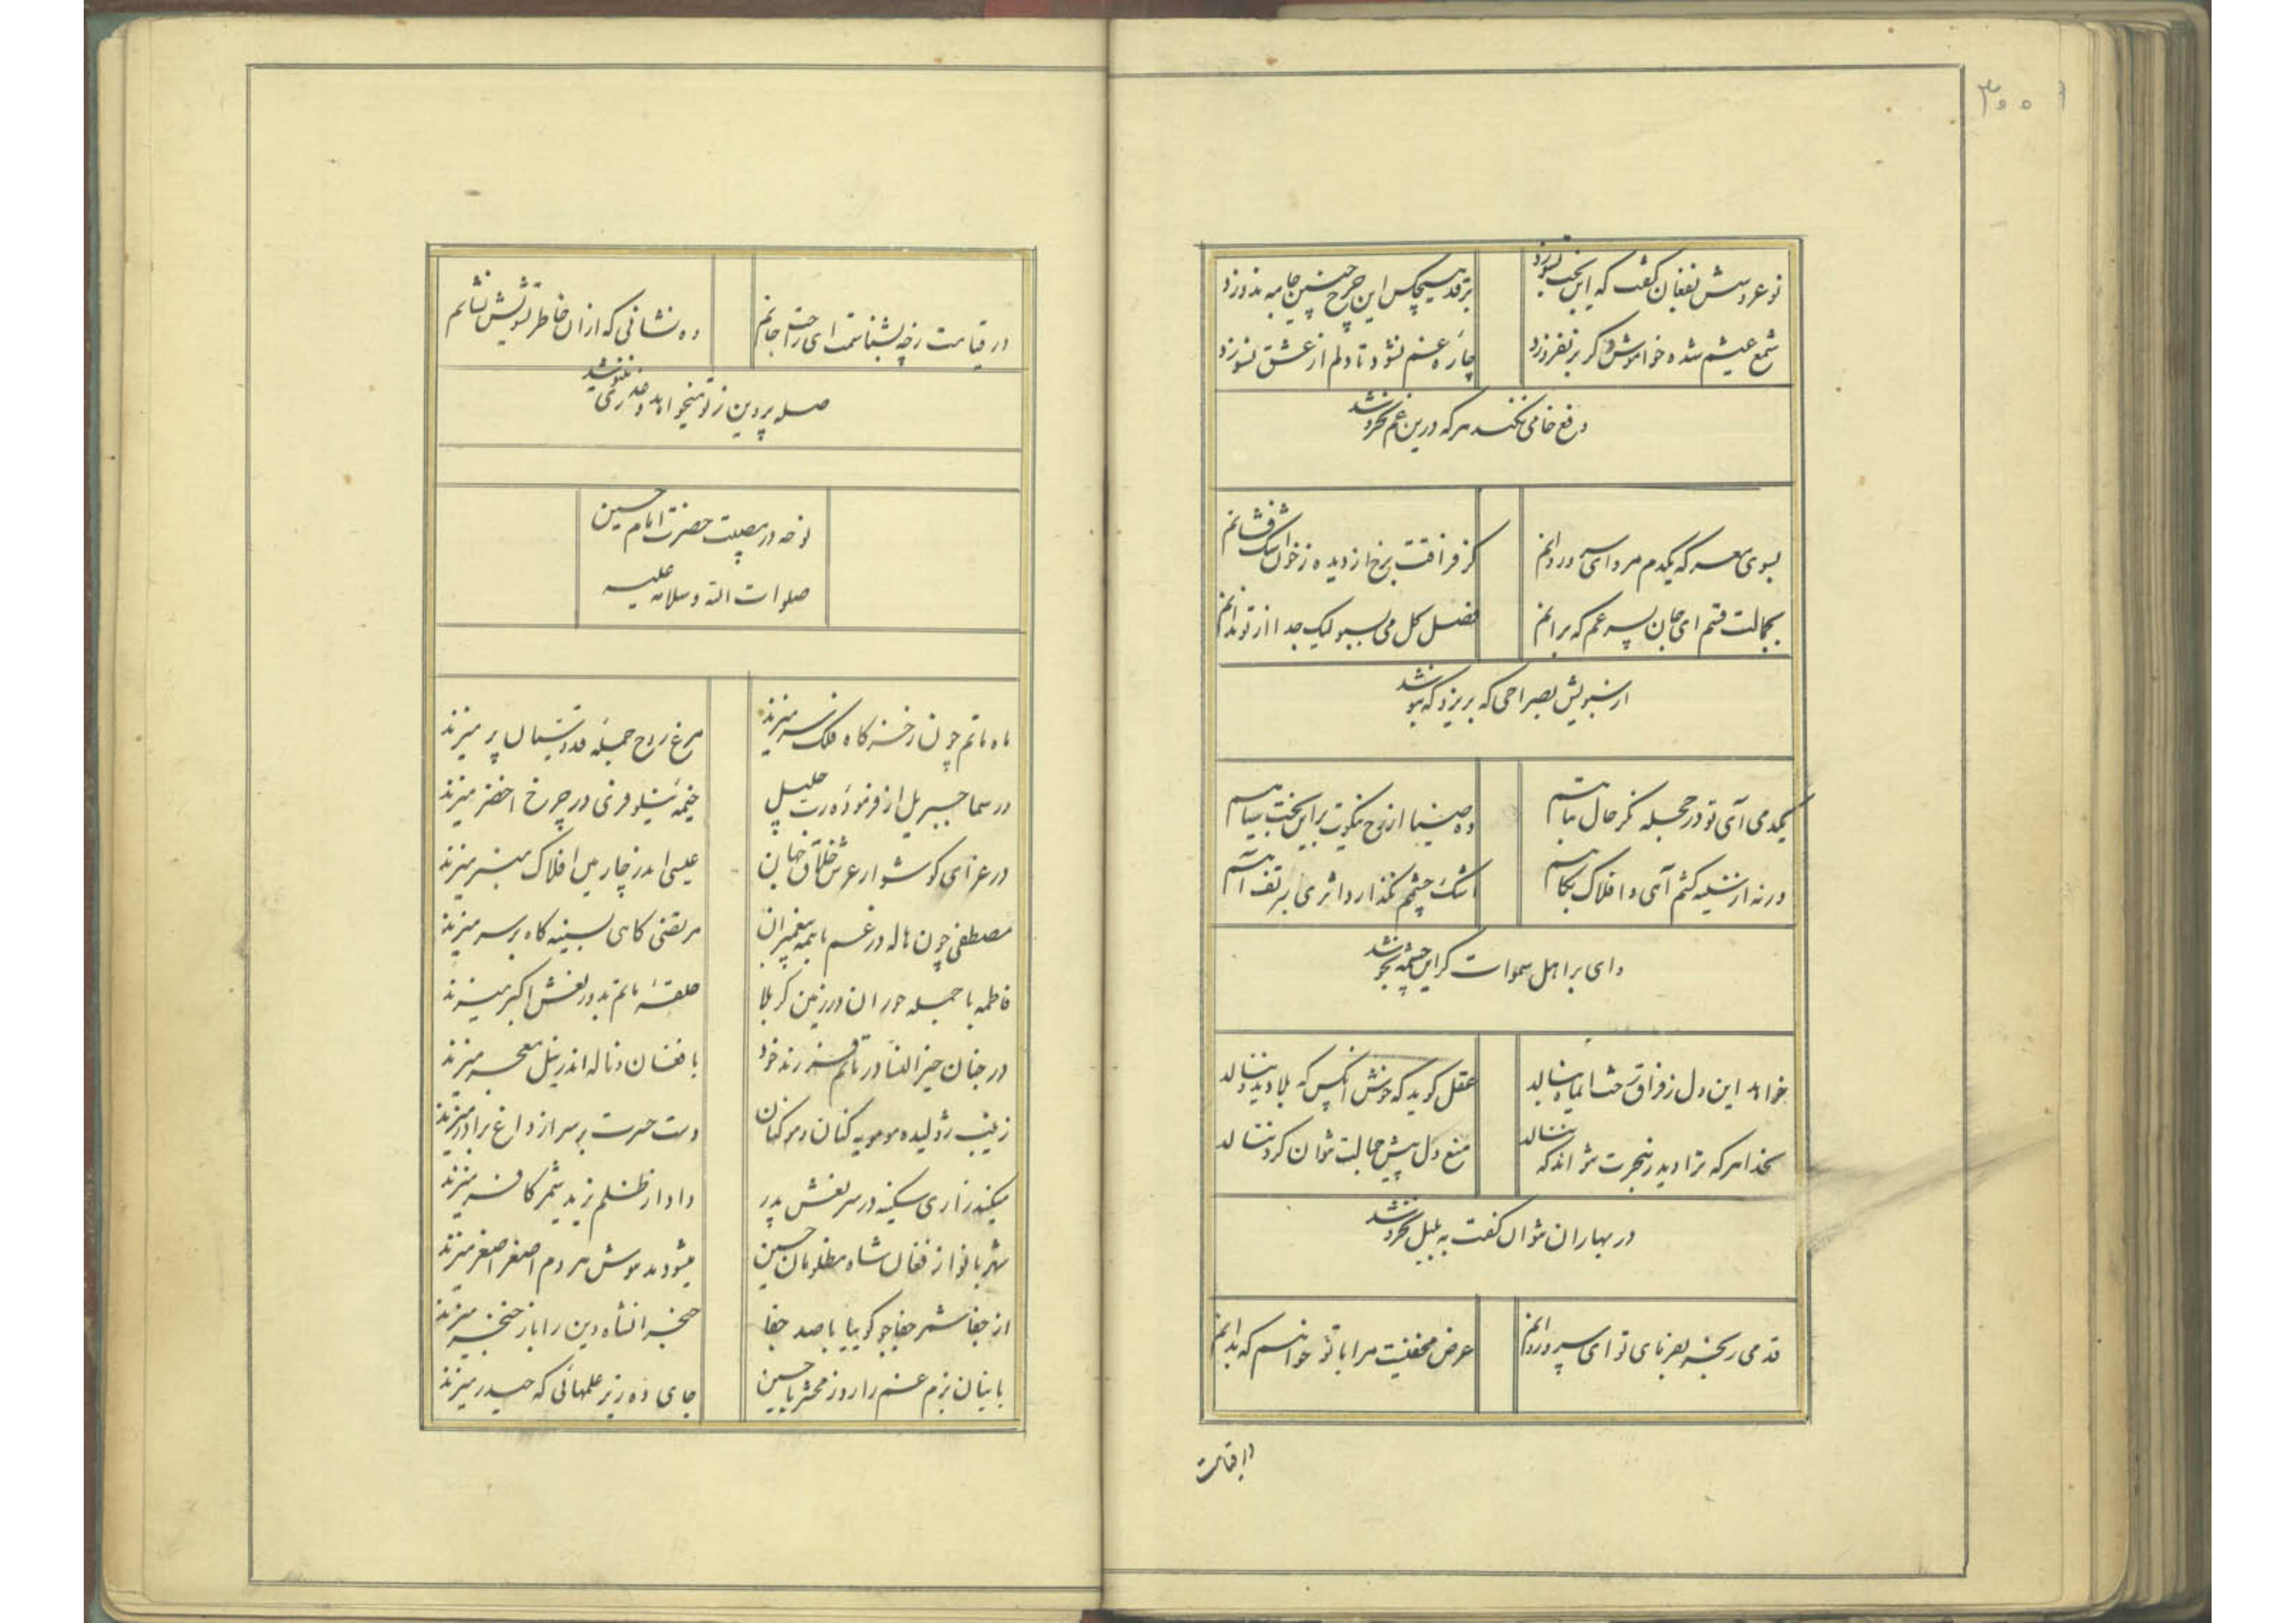 ۳۰۰
نوعروسش بفغان گفت که این بخت بسوزد
بر قد هیچکس این چرخ چنین جامه ندوزد
شمع عیشم شده خواموش و گر بر نفروزد
چارهٔ غم نشود تا دلم از عشق نسوزد
دفع خامی نکند هر که درین غم نخروشد
بسوی معرکه یکدم مرو ای سرو روانم
کز فراقت برخ از دیده ز خون اشک فشانم
بجمالت قسم ای جان پسر عم که برانم
فضل کل می بسبو لیک جدا از تو ندانم
از سبویش بصراحی که بریزد که بنوشد
یکدمی آی تو در حجله نگر حال تباهم
ده ضیا از رخ نیکوت براین بخت سیاهم
ورنه از سینه کشم آی و افلاک بکاهم
اشک چشمم نگذارد اثری بر تف آهم
وای بر اهل سموات گر این چشمه بجوشد
خواهد این دل ز فراق رخت ایماه بنالد
عقل گوید که خوش آنکس که بلا دید و ننالد
بخدا هر که ترا دید ز هجرت نتواند که ننالد
منع دل پیش جمالت نتوان کرد ننالد
در بهاران نتوان گفت به بلبل نخروشد
قدمی رنجه بفرمای تو ای سرو روانم
عرض مخفیست مرا با تو خواهم که بدانم
در قیامت
در قیامت ز چه بشناسمت ای راحت جانم
ده نشانی که ازان خاطر تشویش نشانم
صله پروین ز تو میخواهد و عذری ننیوشد
نوحه در مصیبت حضرت امام حسین
صلوات الله و سلامه علیه
ماه ماتم چون ز خرگاه فلک سر میزند
مرغ روح جمله قدوسیان پر میزند
در سما جبریل از فرمودهٔ رب جلیل
خیمهٔ نیلوفری در چرخ اخضر میزند
در عزای گوشوار عرش خلاق جهان
عیسی اندر چارمین افلاک منبر میزند
مصطفی چون هاله در غم با همه پیغمبران
مرتضی کاهی بسینه کاه بر سر میزند
فاطمه با جمله حوران در زمین کربلا
حلقهٔ ماتم بدور نعش اکبر میزند
در جنان خیرالنسا در ماتم فرزند خود
با فغان و ناله اندر نیل معجر میزند
زینب ژولیده مو مویه کنان و مو کنان
دست حسرت بر سر از داغ برادر میزند
میکند زاری سکینه در سر نعش پدر
داد از ظلم یزید شمر کافر میزند
شهربانو از فغان شاه مظلومان حسین
میشود مدهوش هر دم اصغر اصغر میزند
از جفا شمر جفاجو گوییا با صد جفا
حنجر انشاه دین را باز خنجر میزند
بانیان بزم غم را روز محشر یا حسین
جای ده زیر علمهائی که حیدر میزند